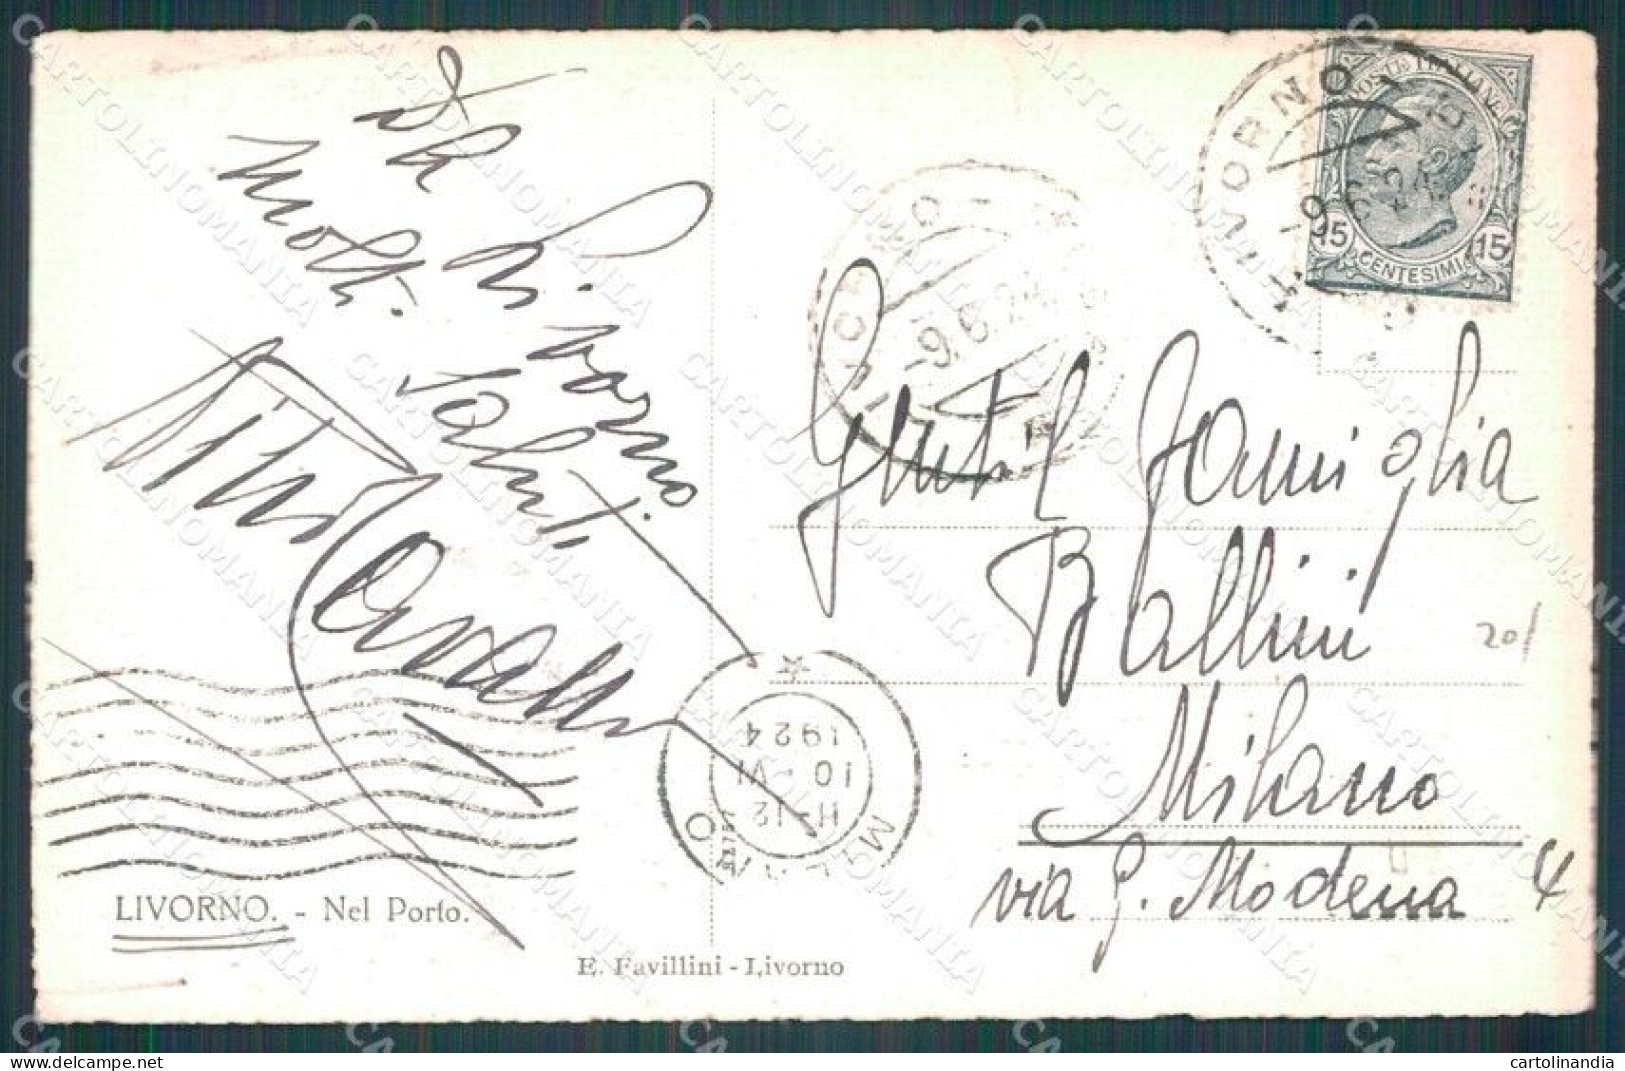 Da Livorno
Molti Saluti
LIVORNO
-9.6.24
LIVORNO
POSTE ITALIANE
15 15
CENTESIMI
Gentil Famiglia
Ballini
Milano
via G. Modena 4
20/
MILANO
11-12
10·VI
1924
LIVORNO. - Nel Porto.
E. Favillini - Livorno
CARTOLINOMANIA
cartolinandia